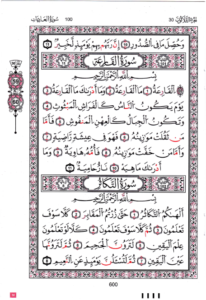 سورة العاديات 100 الجزء الثلاثون 30
وَحُصِّلَ مَا فِي الصُّدُورِ إِنَّ رَبَّهُم بِهِمْ يَوْمَئِذٍ لَّخَبِيرٌ
سُورَةُ الْقَارِعَةِ
بِسْمِ اللَّهِ الرَّحْمَٰنِ الرَّحِيمِ
الْقَارِعَةُ مَا الْقَارِعَةُ وَمَا أَدْرَاكَ مَا الْقَارِعَةُ
يَوْمَ يَكُونُ النَّاسُ كَالْفَرَاشِ الْمَبْثُوثِ
وَتَكُونُ الْجِبَالُ كَالْعِهْنِ الْمَنفُوشِ فَأَمَّا
مَن ثَقُلَتْ مَوَازِينُهُ فَهُوَ فِي عِيشَةٍ رَّاضِيَةٍ
وَأَمَّا مَنْ خَفَّتْ مَوَازِينُهُ فَأُمُّهُ هَاوِيَةٌ وَمَا
أَدْرَاكَ مَا هِيَهْ نَارٌ حَامِيَةٌ
سُورَةُ التَّكَاثُرِ
بِسْمِ اللَّهِ الرَّحْمَٰنِ الرَّحِيمِ
أَلْهَاكُمُ التَّكَاثُرُ حَتَّىٰ زُرْتُمُ الْمَقَابِرَ كَلَّا سَوْفَ
تَعْلَمُونَ ثُمَّ كَلَّا سَوْفَ تَعْلَمُونَ كَلَّا لَوْ تَعْلَمُونَ
عِلْمَ الْيَقِينِ لَتَرَوُنَّ الْجَحِيمَ ثُمَّ لَتَرَوُنَّهَا
عَيْنَ الْيَقِينِ ثُمَّ لَتُسْأَلُنَّ يَوْمَئِذٍ عَنِ النَّعِيمِ
600